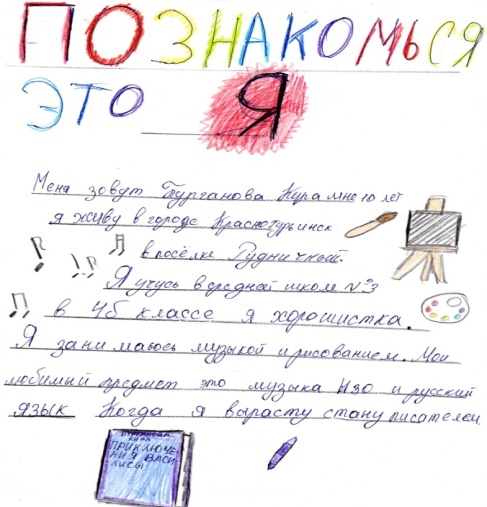 ПОЗНАКОМЬСЯ
ЭТО Я
Меня зовут Турганова Кира мне 10 лет
я живу в городе Краснотурьинск
в посёлке Рудничный.
Я учусь в средней школе №3
в 4б классе я хорошистка.
Я занимаюсь музыкой и рисованием. Мои
любимый предмет это музыка Изо и русский
язык Когда я вырасту стану писателем
КИРА
ПРИКЛЮЧЕ-
НИЯ ВАСИ-
ЛИСЫ